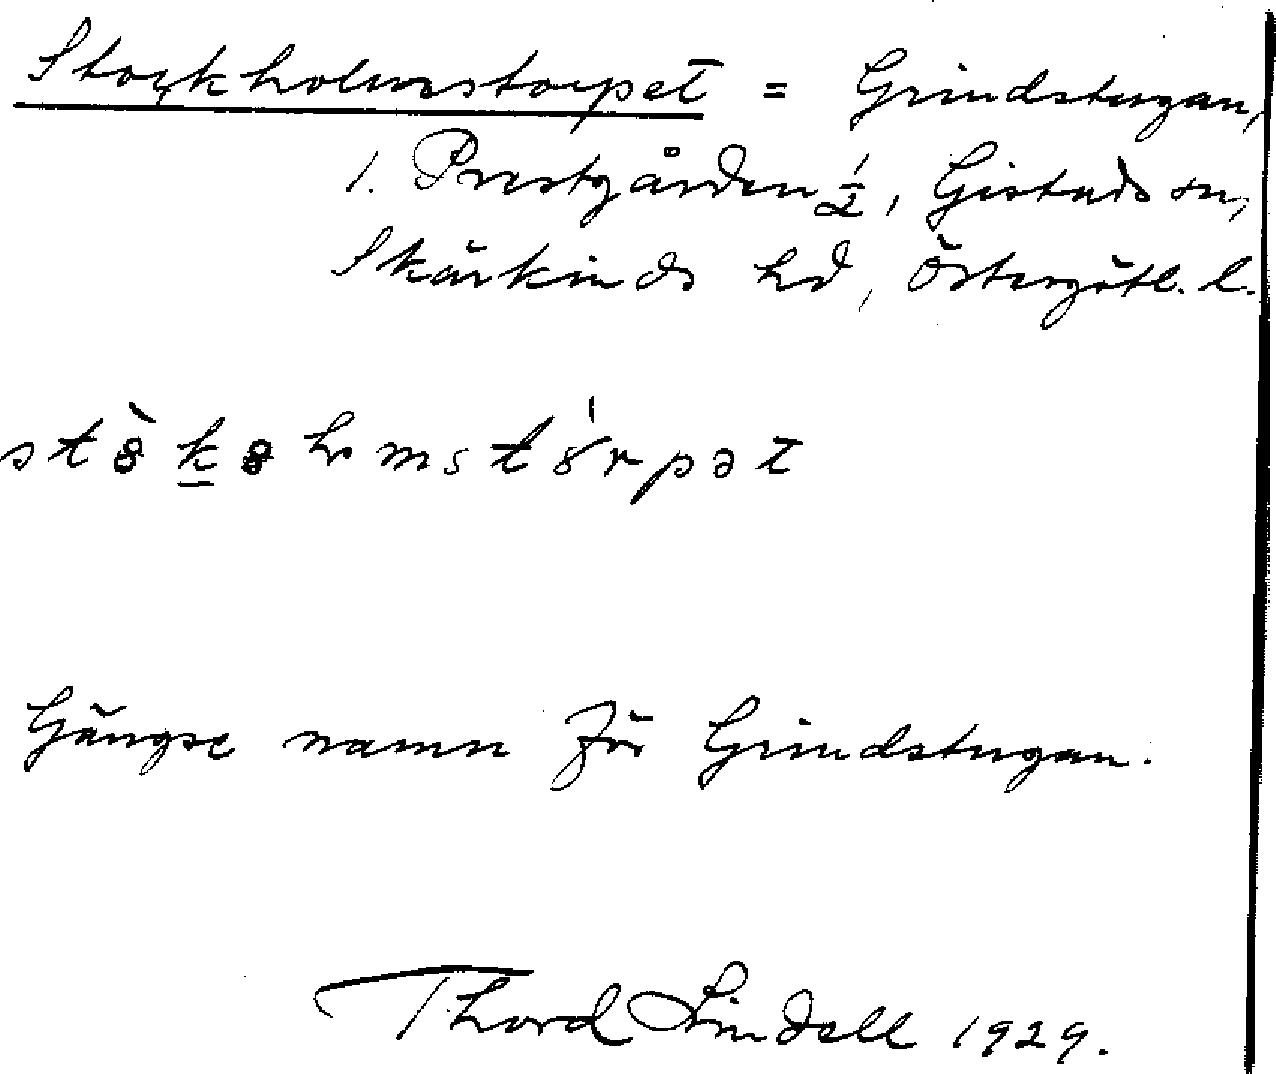 Stockholmstorpet = Grindstugan,
1. Prestgården ½, Gistads sn,
Skärkinds hd, Östergötl. l.
Gängse namn för Grindstugan.
Thord Lindell 1929.